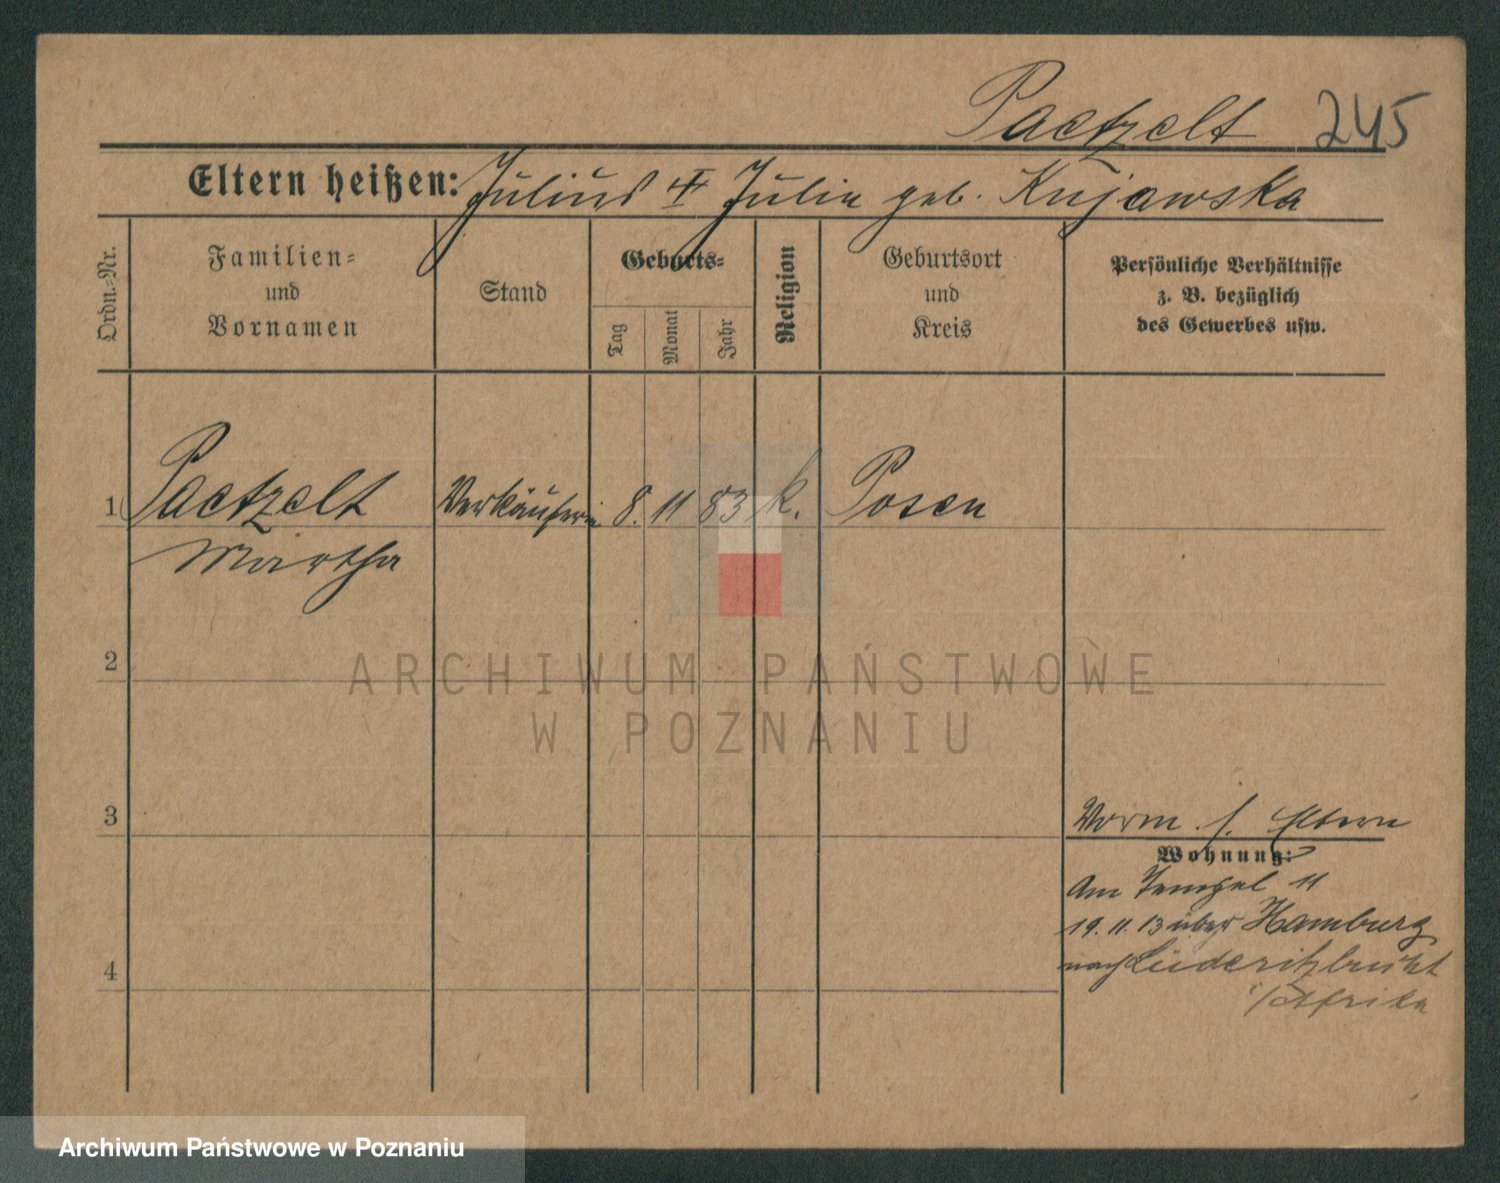 Paetzelt 245
Eltern heißen: Julius u. Julie geb. Kujawska
Ordn.-Nr.
Familien-
und
Vornamen
Stand
Geburts-
Tag
Monat
Jahr
Religion
Geburtsort
und
Kreis
Persönliche Verhältnisse
z. B. bezüglich
des Gewerbes usw.
1 Paetzelt Verkäuferin 8. 11 83 k. Posen
Martha
2
ARCHIWUM PAŃSTWOWE
W POZNANIU
3
Vorm. s. Eltern
Wohnung:
Am Tempel 11
19. 11. 13 über Hamburg
nach Lüderitzbucht
4
i/Afrika
Archiwum Państwowe w Poznaniu